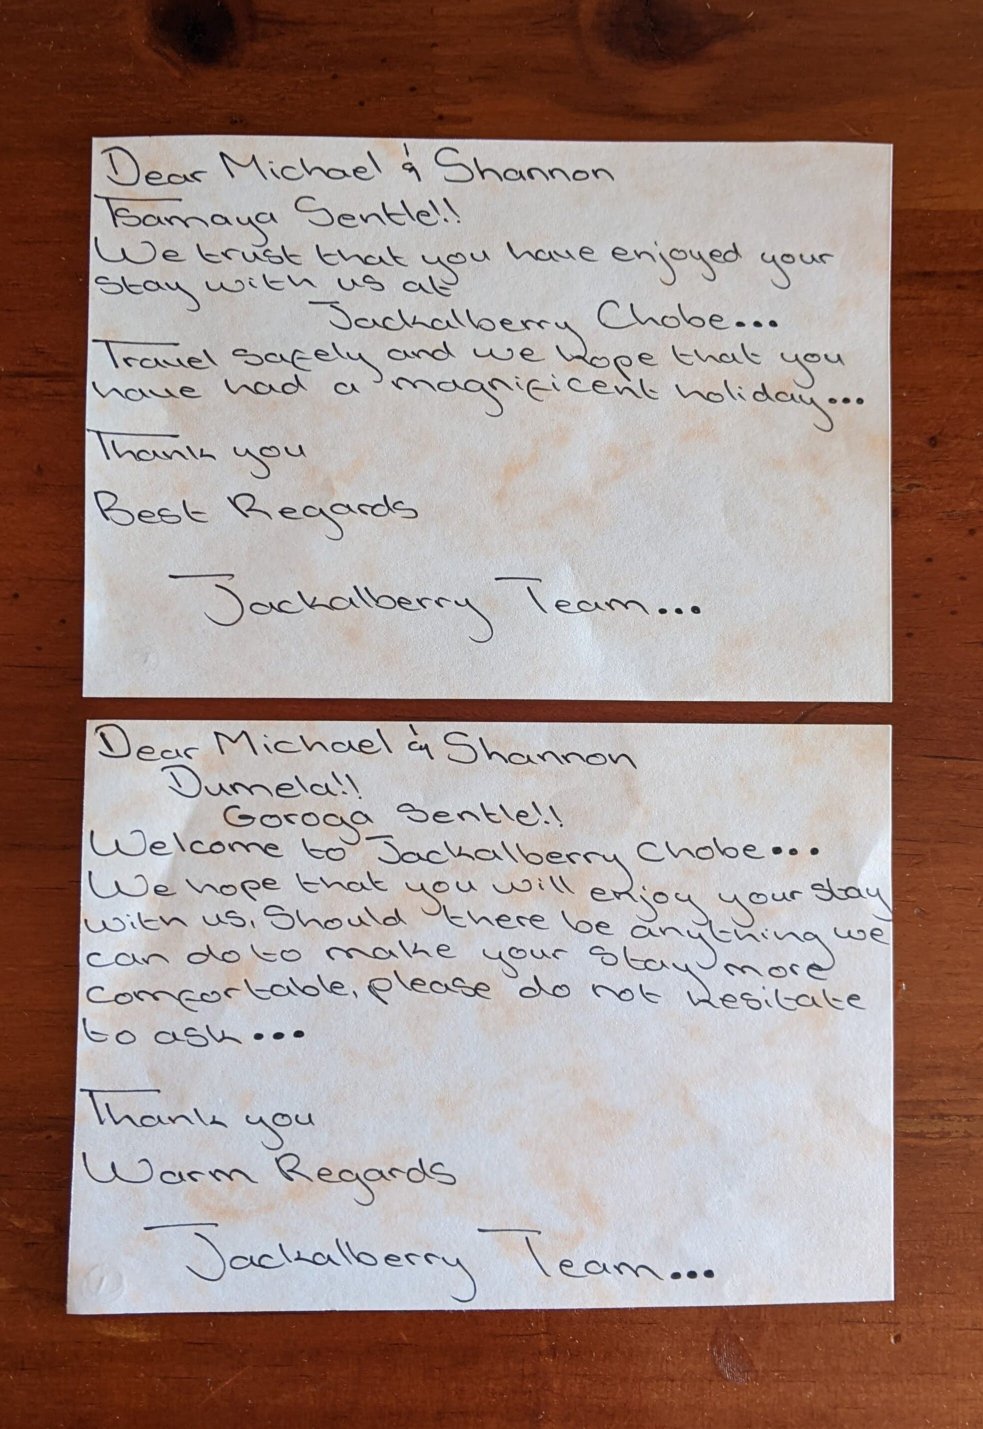 Dear Michael & Shannon
Tsamaya Sentle!!
We trust that you have enjoyed your
stay with us at
Jackalberry Chobe...
Travel safely and we hope that you
have had a magnificent holiday...
Thank you
Best Regards
Jackalberry Team...
Dear Michael & Shannon
Dumela!!
Goroga Sentle!!
Welcome to Jackalberry Chobe...
We hope that you will enjoy your stay
with us. Should there be anything we
can do to make your stay more
comfortable, please do not hesitate
to ask...
Thank you
Warm Regards
Jackalberry Team...